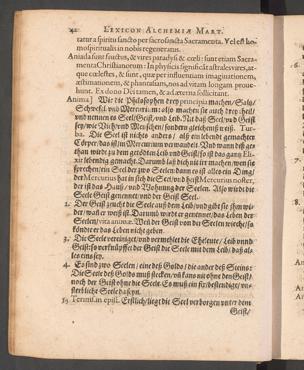 42 LEXICON ALCHEMIÆ MART.
ratur a spiritu sancto per sacrosancta Sacramenta. Vel est ho-
mo spiritualis in nobis regeneratus.
Aniada sunt fructus, & vires paradysi & cœli: sunt etiam Sacra-
menta Christianorum: In physicis significat astrales vires, at-
que cœlestes, & sunt, quæ per influentiam imaginationem,
æstimationem, & phantasiam, nos ad vitam longam proue-
hunt. Ex dono Dei tamen, & ad æterna sollicitant.
Anima] Wie die Philosophen drey principia machen/ Salz/
Schwefel vnd Mercurium: also machen sie auch drey theil/
vnd nennen es Seel/ Geist/ vnd Leib. Nit daß Seel/ vnd Geist
sey/ wie Vieh vnd Menschen/ sondern gleichens weiß. Tur-
ba. Die Seel ist nichts anders/ als ein lebendig gemachten
Cörper/ das ist/ in Mercurium verwandelt. Vnd wann deß
than würdt zu dem getödten Leib vnd Geist/ so ist das gantz Eli-
xir lebendig gemacht. Darumb laß dich nit irr machen/ wenn sie
sprechen/ ein Seel der zwo Seelen: dann es ist alles ein Ding/
der Mercurius hat in sich die Seel/ vnd heist Mercurius noster,
der ist das Hauß/ vnd Wohnung der Seelen. Also würdt die
Seele Geist genennet/ vnd der Geist Seel.
2. Der Geist zeucht die Seele auß dem Leib/ vnd gibt sie ihm wi-
der/ wan er weiß ist. Darumb würdt er genennet/ das Leben der
Seelen/ vita animæ. Weil der Geist von der Seelen wiche/ so
könde er das Leben nicht geben.
3. Die Seele vereiniget/ vnd vermehlet die Eheleute/ Leib vnnd
Geist: so verknüpffet der Geist die Seele mit dem Leib/ daß al-
les eins sey.
4. Es sind zwo Seelen/ eine deß Golds/ die ander deß Steins:
Die Seele deß Golds muß stecken/ vñ kans nit ohne den Geist/
noch der Geist ohne die Seele. Es muß ein fix bestendige/
sterbliche Seele da seyn.
5. in epist. Erstlich/ liegt die Seel verborgen vnter dem
Geist/